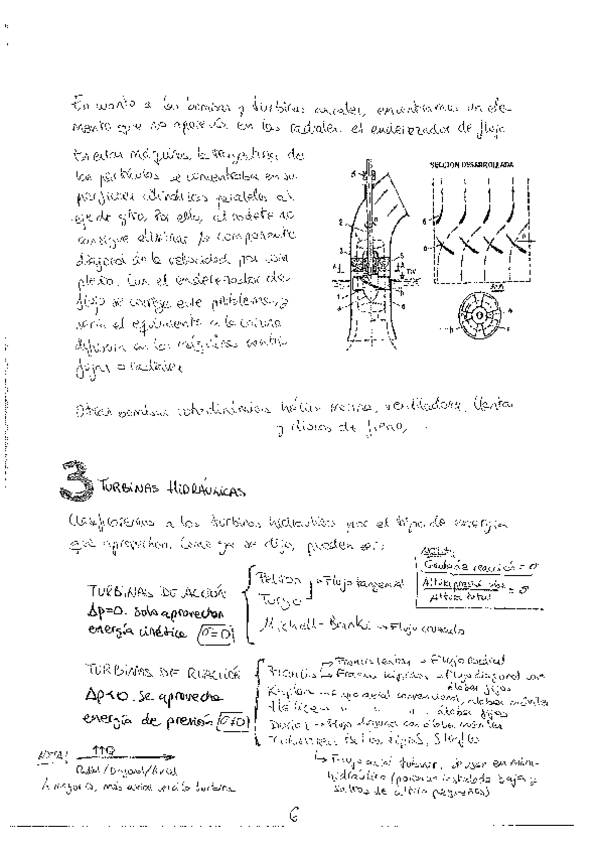 En cuanto a las bombas y turbinas axiales, encontramos un ele-
mento que no aparecía en las radiales: el enderezador de flujo
En estas máquinas la trayectoria de
las partículas se concentraba en su-
perficies cilíndricas paralelas al
eje de giro. Por ello, el rodete no
consigue eliminar la componente
diagonal de la velocidad por com-
pleto. Con el enderezador de
flujo se corrige este problema, y
sería el equivalente a la corona
difusora en las máquinas centrí-
fugas o radiales
SECCION DESARROLLADA
Otras bombas rotodinámicas: hélice marina, ventiladores,
y discos de freno,
3 TURBINAS HIDRÁULICAS
Clasificaremos a las turbinas hidráulicas por el tipo de energía
que aprovechan. Como ya se dijo, pueden ser:
NOTA:
Grado de reacción = σ
Altura presión
Altura total = σ
TURBINAS DE ACCIÓN
Δp=0. Solo aprovechan
energía cinética (σ=0)
Pelton
Turgo
→ Flujo tangencial
Michell-Banki → Flujo cruzado
TURBINAS DE REACCIÓN
Δp<0. Se aprovecha
energía de presión (σ≠0)
Francis
Francis lentas → Flujo radial
Francis rápidas → flujo diagonal con
álabes fijos
Kaplan → Flujo axial convencional, álabes móviles
Hélice → " " " , álabes fijos
Deriaz → Flujo diagonal con álabes móviles
Tubulares: Bulbo, tipo S, Straflo
→ Flujo axial tubular, de uso en mini-
hidráulica (potencia instalada baja y
saltos de altura pequeños)
NOTA:
Radial/Diagonal/Axial
A mayor Ω, más axial será la turbina
6